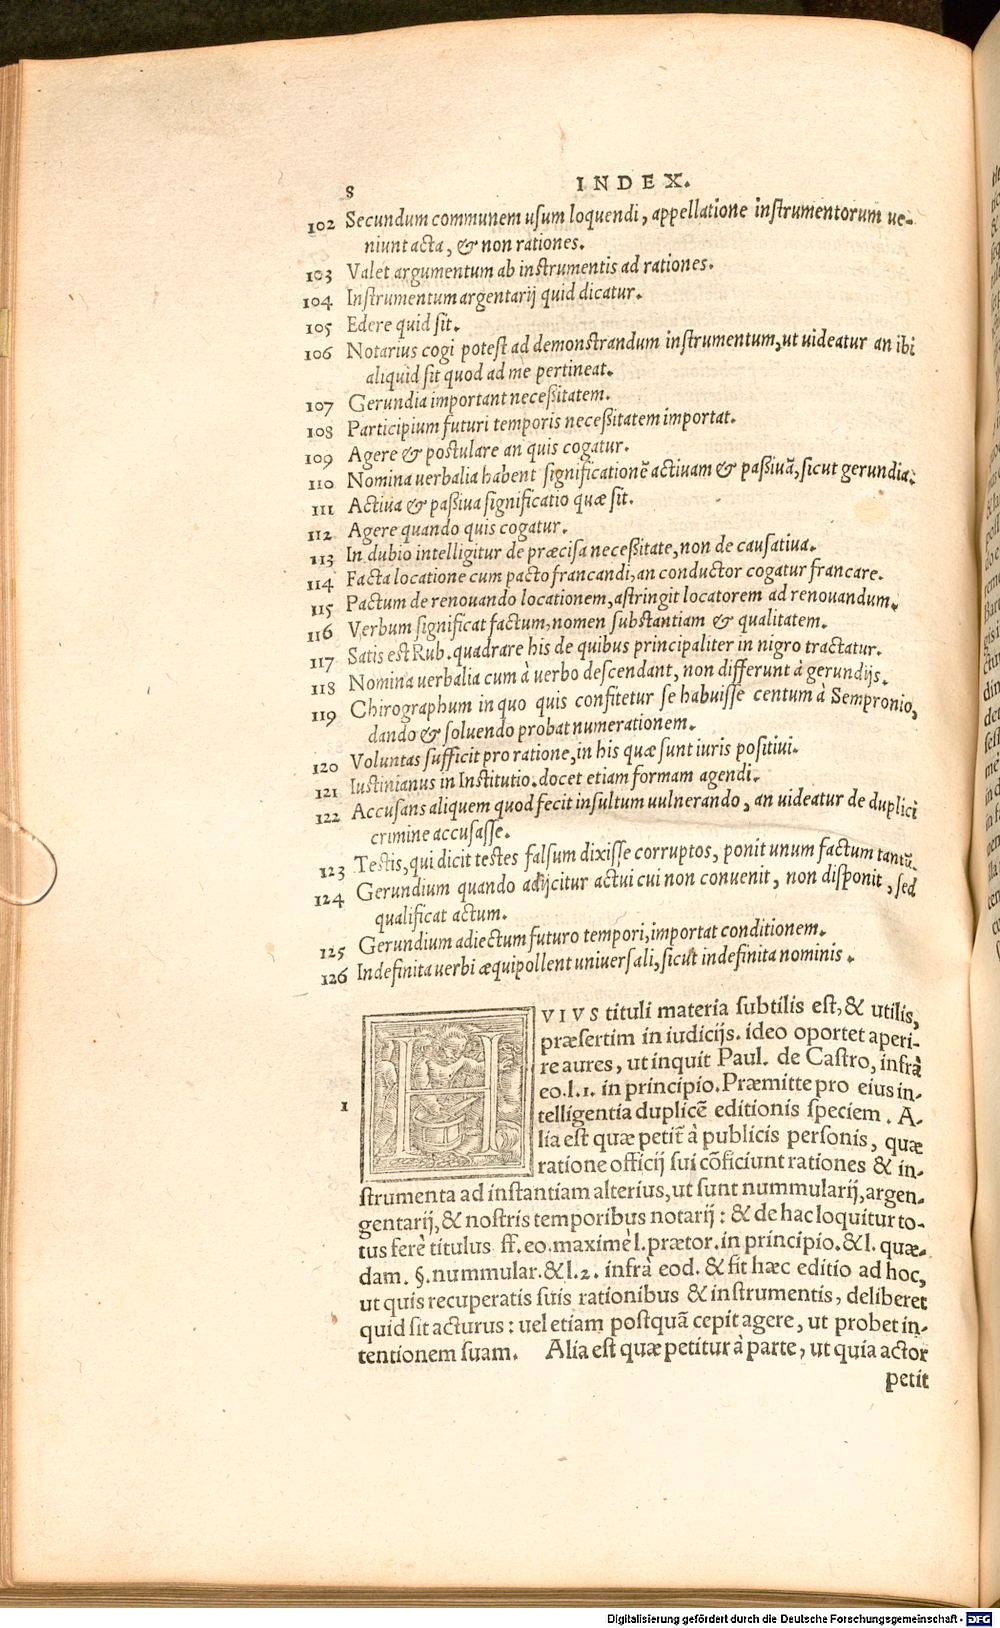 8 INDEX.
102 Secundum communem usum loquendi, appellatione instrumentorum ue-
niunt acta, & non rationes.
103 Valet argumentum ab instrumentis ad rationes.
104 Instrumentum argentarij quid dicatur.
105 Edere quid sit.
106 Notarius cogi potest ad demonstrandum instrumentum, ut uideatur an ibi
aliquid sit quod ad me pertineat.
107 Gerundia important neceßitatem.
108 Participium futuri temporis neceßitatem importat.
109 Agere & postulare an quis cogatur.
110 Nomina uerbalia habent significationē actiuam & paßiuā, sicut gerundia.
111 Actiua & paßiua significatio quæ sit.
112 Agere quando quis cogatur.
113 In dubio intelligitur de præcisa neceßitate, non de causatiua.
114 Facta locatione cum pacto francandi, an conductor cogatur francare.
115 Pactum de renouando locationem, astringit locatorem ad renouandum.
116 Verbum significat factum, nomen substantiam & qualitatem.
117 Satis est Rub. quadrare his de quibus principaliter in nigro tractatur.
118 Nomina uerbalia cum à uerbo descendant, non differunt à gerundijs.
119 Chirographum in quo quis confitetur se habuisse centum à Sempronio,
dando & soluendo probat numerationem.
120 Voluntas sufficit pro ratione, in his quæ sunt iuris positiui.
121 Iustinianus in Institutio. docet etiam formam agendi.
122 Accusans aliquem quod fecit insultum uulnerando, an uideatur de duplici
crimine accusasse.
123 Testis, qui dicit testes falsum dixisse corruptos, ponit unum factum tantū.
124 Gerundium quando adijcitur actui cui non conuenit, non disponit, sed
qualificat actum.
125 Gerundium adiectum futuro tempori, importat conditionem.
126 Indefinita uerbi æquipollent uniuersali, sicut indefinita nominis.
HVIVS tituli materia subtilis est, & utilis,
præsertim in iudicijs. ideo oportet aperi-
re aures, ut inquit Paul. de Castro, infrà
eo. l. 1. in principio. Præmitte pro eius in-
1 telligentia duplicē editionis speciem. A-
lia est quæ petit̄ à publicis personis, quæ
ratione officij sui cōficiunt rationes & in-
strumenta ad instantiam alterius, ut sunt nummularij, argen-
gentarij, & nostris temporibus notarij: & de hac loquitur to-
tus ferè titulus ff. eo. maximè l. prætor. in principio. & l. quæ-
dam. §. nummular. & l. 2. infrà eod. & fit hæc editio ad hoc,
ut quis recuperatis suis rationibus & instrumentis, deliberet
quid sit acturus: uel etiam postquā cepit agere, ut probet in-
tentionem suam. Alia est quæ petitur à parte, ut quia actor
petit
Digitalisierung gefördert durch die Deutsche Forschungsgemeinschaft - DFG